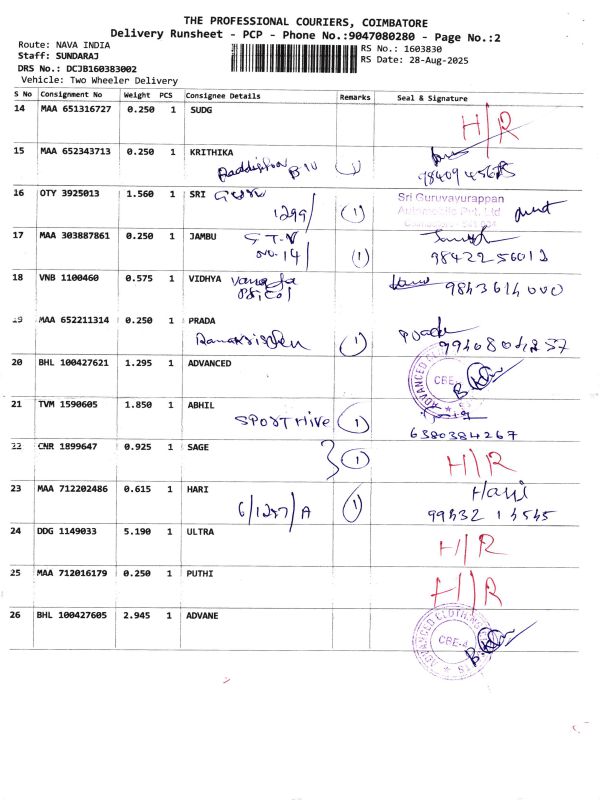 THE PROFESSIONAL COURIERS, COIMBATORE
Delivery Runsheet - PCP - Phone No.:9047080280 - Page No.:2
Route: NAVA INDIA
RS No.: 1603830
Staff: SUNDARAJ
RS Date: 28-Aug-2025
DRS No.: DCJB160383002
Vehicle: Two Wheeler Delivery
S No Consignment No Weight PCS Consignee Details Remarks Seal & Signature
14 MAA 651316727 0.250 1 SUDG H/R
15 MAA 652343713 0.250 1 KRITHIKA
16 OTY 3925013 1.560 1 SRI
1299/ (1)
Sri Guruvayurappan
Automobile Pvt. Ltd
17 MAA 303887861 0.250 1 JAMBU G.T.V
No.14/ (1) 9842256012
18 VNB 1100460 0.575 1 VIDHYA
9843614000
19 MAA 652211314 0.250 1 PRADA
(1)
20 BHL 100427621 1.295 1 ADVANCED
ADVANCED CLOTHING
CBE-4
21 TVM 1590605 1.850 1 ABHIL
SPORT HIVE (1)
6380384267
22 CNR 1899647 0.925 1 SAGE (1) H/R
23 MAA 712202486 0.615 1 HARI Hari
6/1257/A (1)
24 DDG 1149033 5.190 1 ULTRA H/R
25 MAA 712016179 0.250 1 PUTHI H/R
26 BHL 100427605 2.945 1 ADVANE
ADVANCED CLOTHING
CBE-4